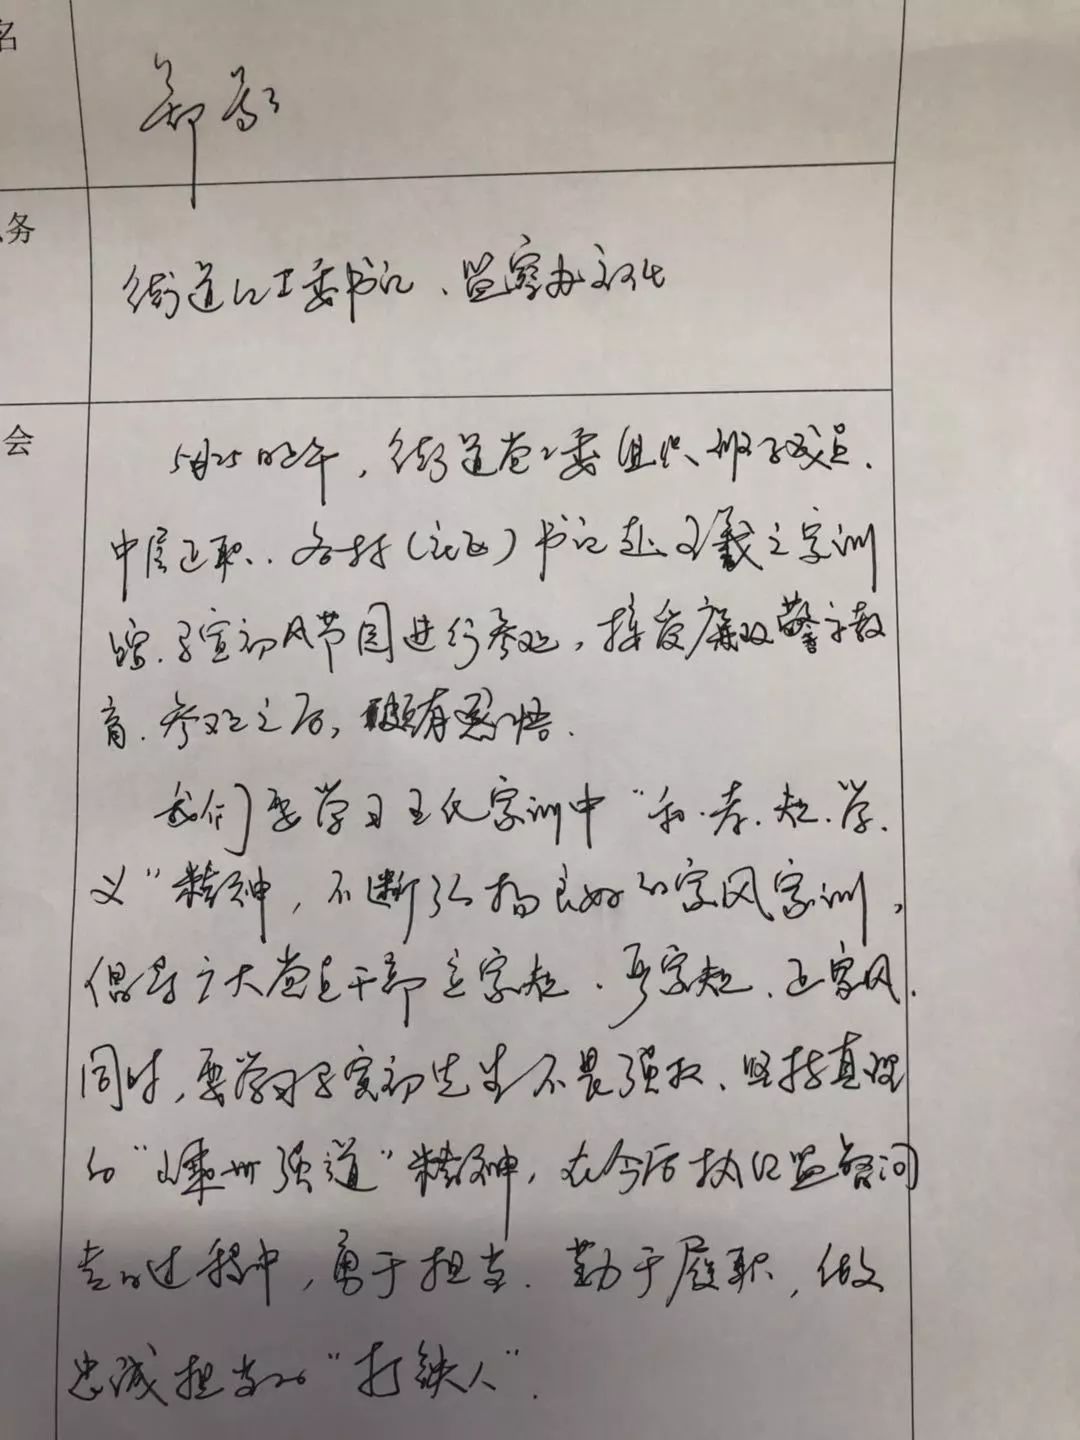 名
郑
务
街道纪工委书记、监察办主任
会
5月25日上午，街道党工委组织班子成员、
中层正职、各村（社区）书记赴王羲之家训
馆、马寅初风节园进行参观，接受廉政警示教
育。参观之后，颇有感悟。
我们要学习王氏家训中“和、孝、规、学、
义”精神，不断弘扬良好的家风家训，
倡导广大党员干部立家规、守家规、正家风。
同时，要学习马寅初先生不畏强权、坚持真理
的“嵊州强道”精神，在今后执纪监督问
责的过程中，勇于担当、勤于履职，做
忠诚担当的“打铁人”。